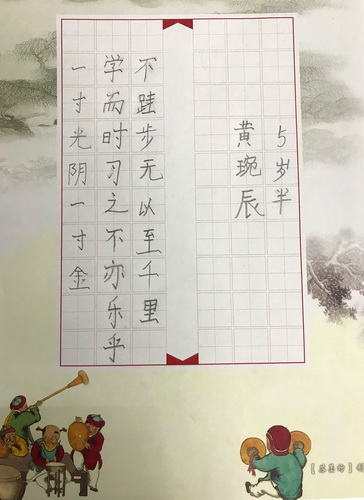 5岁半
黄琬辰
不跬步无以至千里
学而时习之不亦乐乎
一寸光阴一寸金